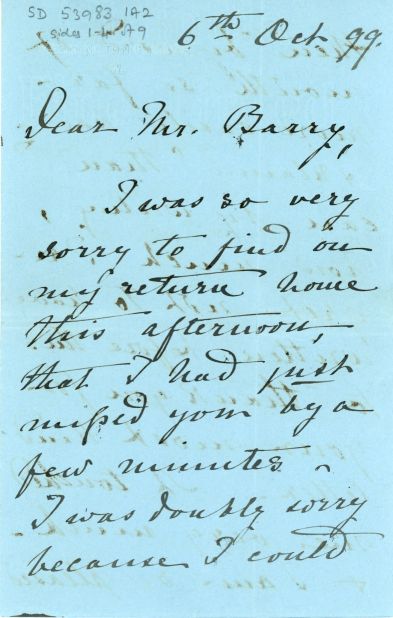 SD 53983 1A2
sides 1-4
6th Oct. 99.
Dear Mr. Barry,
I was so very
sorry to find on
my return home
this afternoon,
that I had just
missed you by a
few minutes –
I was doubly sorry
because I could